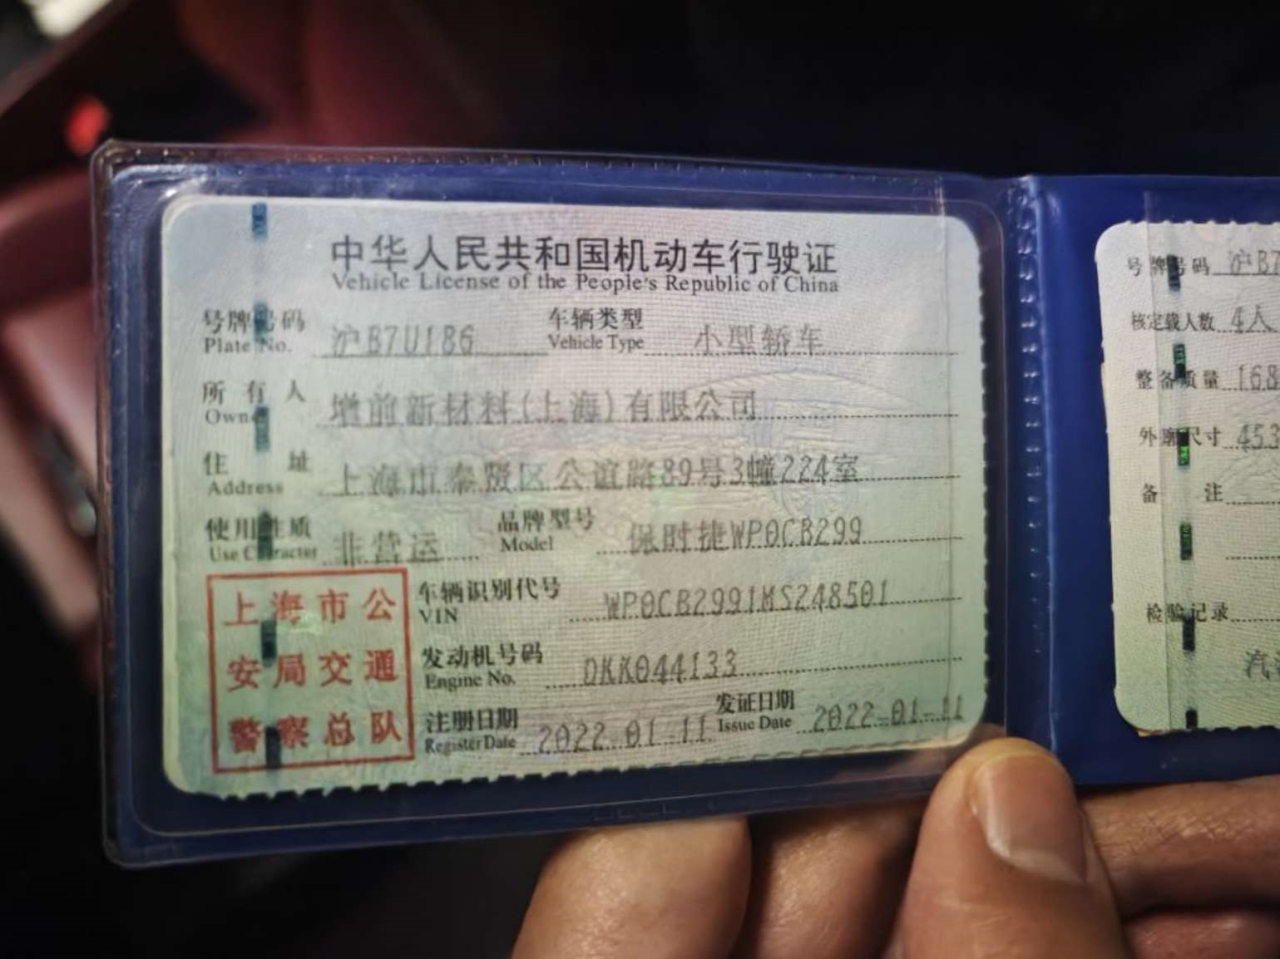 中华人民共和国机动车行驶证
Vehicle License of the People's Republic of China
号牌号码 沪B7U186 车辆类型 小型轿车
Plate No. Vehicle Type
所有人 增前新材料(上海)有限公司
Owner
住址 上海市奉贤区公谊路89号3幢224室
Address
使用性质 非营运 品牌型号 保时捷WP0CB299
Use Character Model
车辆识别代号 WP0CB2991MS248501
VIN
发动机号码 DKK044133
Engine No.
注册日期 2022-01-11 发证日期 2022-01-11
Register Date Issue Date
上海市公
安局交通
警察总队
号牌号码 沪B7
核定载人数 4人
整备质量 168
外廓尺寸 453
备注
检验记录